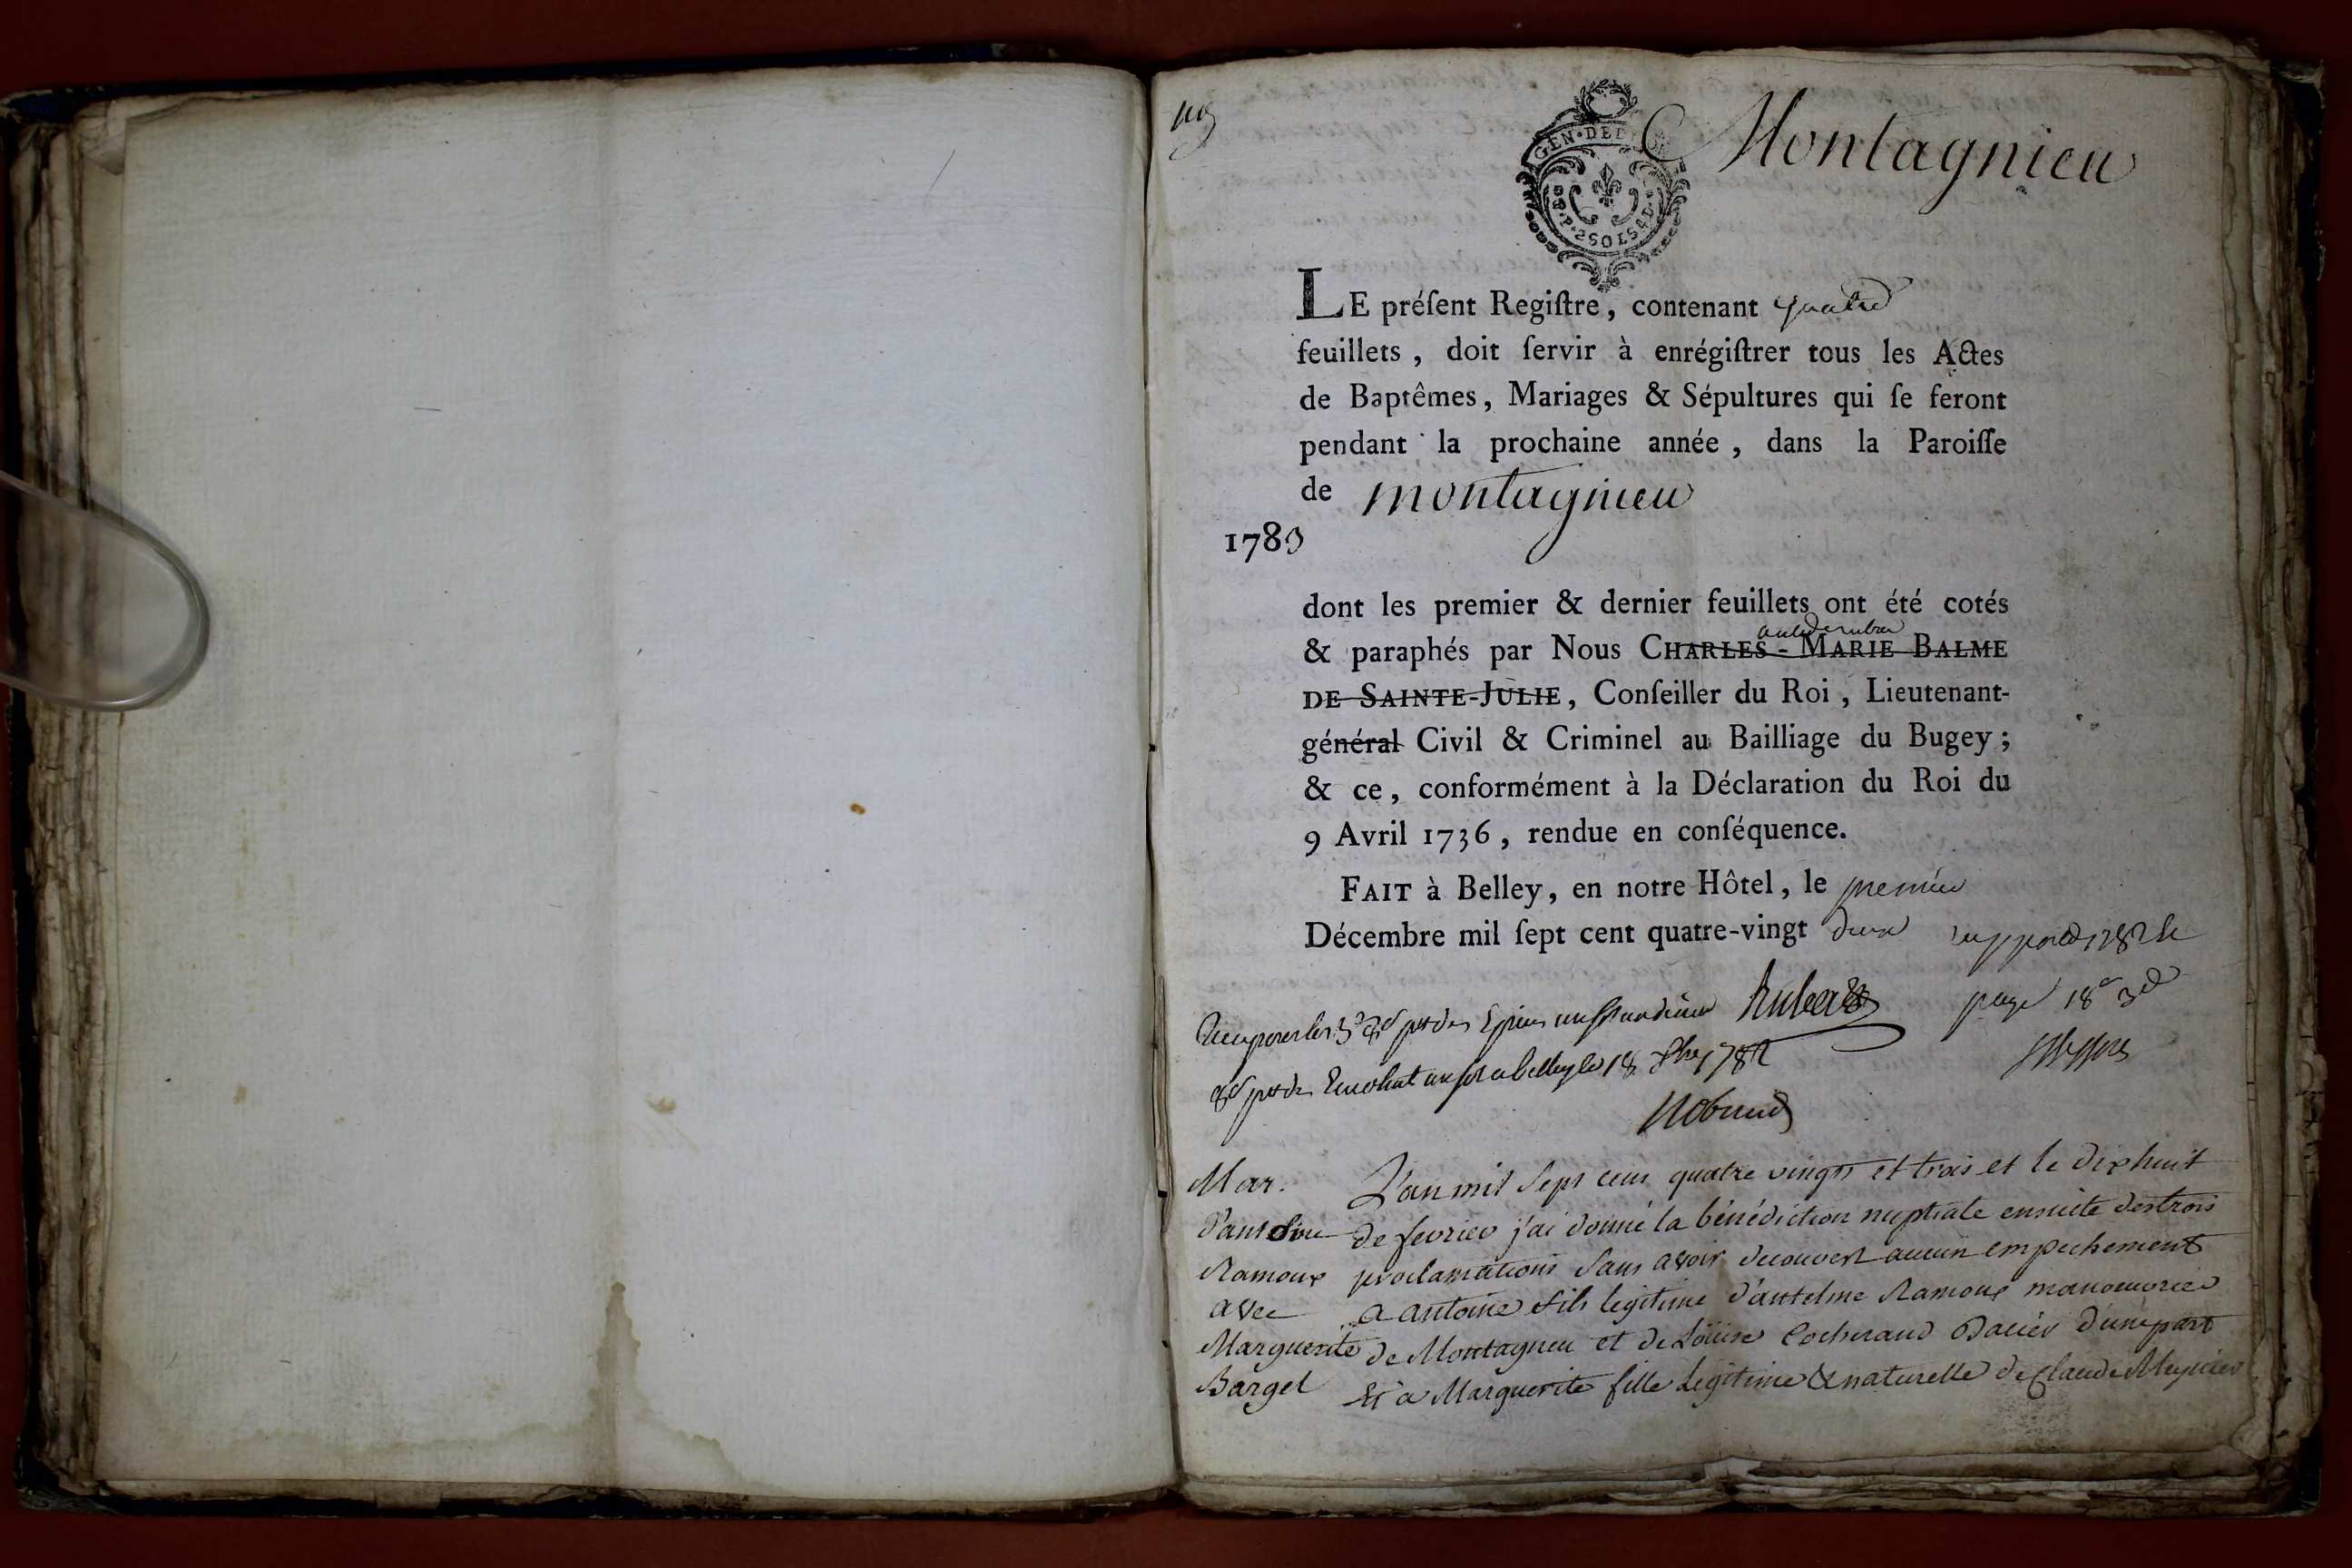 Montagnieu
GEN·DE
2SOLS4D·
LE préſent Regiſtre, contenant quatre
feuillets, doit ſervir à enrégiſtrer tous les Actes
de Baptêmes, Mariages & Sépultures qui ſe feront
pendant la prochaine année, dans la Paroiſſe
de montagnieu
1783
dont les premier & dernier feuillets ont été cotés
& paraphés par Nous CHARLES-MARIE BALME
DE SAINTE-JULIE, Conſeiller du Roi, Lieutenant-
général Civil & Criminel au Bailliage du Bugey;
& ce, conformément à la Déclaration du Roi du
9 Avril 1736, rendue en conſéquence.
FAIT à Belley, en notre Hôtel, le premier
Décembre mil ſept cent quatre-vingt deux
1782
page 18
belley le 18 1782
Mar.
d'antoine
Ramoux
avec
Marguerite
Barget
L'an mil sept cens quatre vingts et trois et le dixhuit
de fevrier j'ai donné la bénédiction nuptiale ensuite des trois
proclamations sans avoir decouvert aucun empechement
a antoine fils legitime d'antelme Ramoux manouvrier
de Montagneu et de Loüise Cocherand Dacier d'une part
et à Marguerite fille Légitime & naturelle de Claude